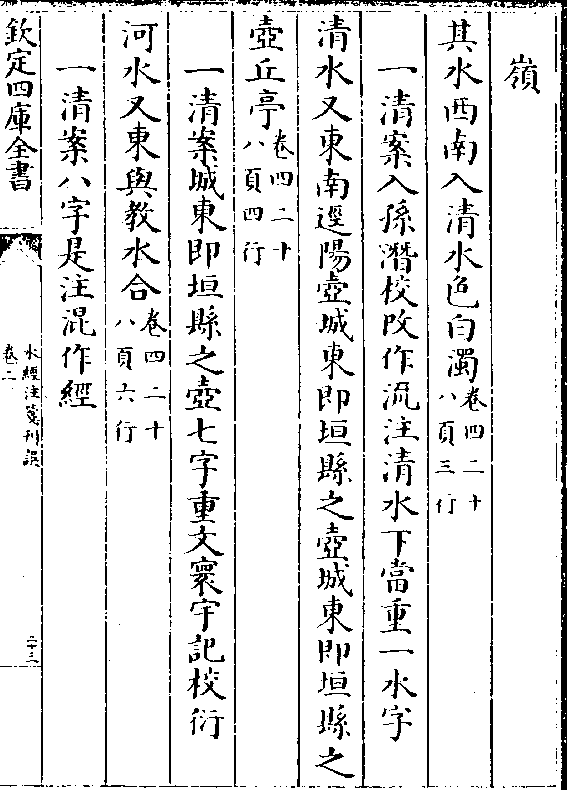 嶺
其水西南入清水色白濁卷四二十八頁三行
一清案入孫潛校改作流注清水下當重一水字
清水又東南逕陽壺城東即垣縣之壺城東即垣縣之
壺丘亭卷四二十八頁四行
一清案城東即垣縣之壺七字重文寰宇記校衍
河水又東與教水合卷四二十八頁六行
一清案八字是注混作經
欽定四庫全書
水經注箋刊誤
卷二
二十三